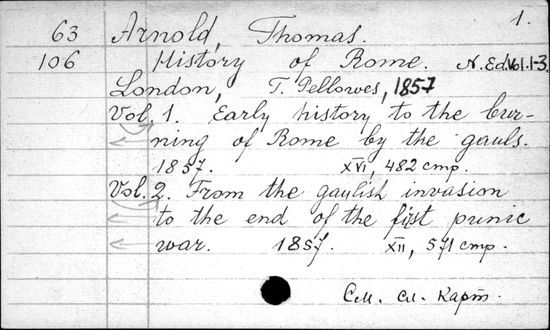 1.
63 Arnold, Thomas.
106 History of Rome. N. Ed. Vol. 1-3.
London, T. Fellowes, 1857
Vol. 1. Early history to the bur-
ning of Rome by the gauls.
1857. XVI, 482 стр.
Vol. 2. From the gaulish invasion
to the end of the first punic
war. 1857. XII, 571 стр.
См. сл. карт.